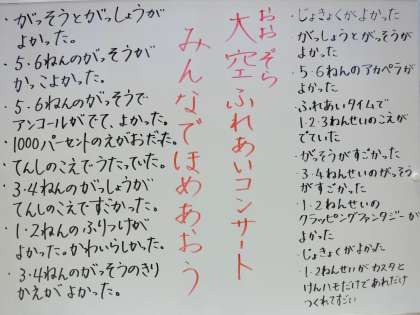 がっそうとがっしょうが
よかった。
・5・6ねんのがっそうが
かっこよかった。
・5・6ねんのがっそうで
アンコールがでて、よかった。
・1000パーセントのえがおだった。
・てんしのこえでうたっていた。
・3・4ねんのがっしょうが
てんしのこえですごかった。
・1・2ねんのふりつけが
よかった。かわいらしかった。
・3・4ねんのがっそうのきり
かえがよかった。
おお ぞら
大空ふれあいコンサート
みんなでほめあおう
・じょきょくがよかった
・がっしょうとがっそうが
よかった
・5・6ねんのアカペラが
よかった
・ふれあいタイムで
1・2・3ねんせいのこえが
でていた
・がっそうがすごかった
・3・4ねんせいのがっそう
がすごかった
・1・2ねんせいの
クラッピングファンタジーが
よかった
・じょきょくがよかった
・1・2ねんせいがカスタと
けんハモだけであれだけ
つくれてすごい